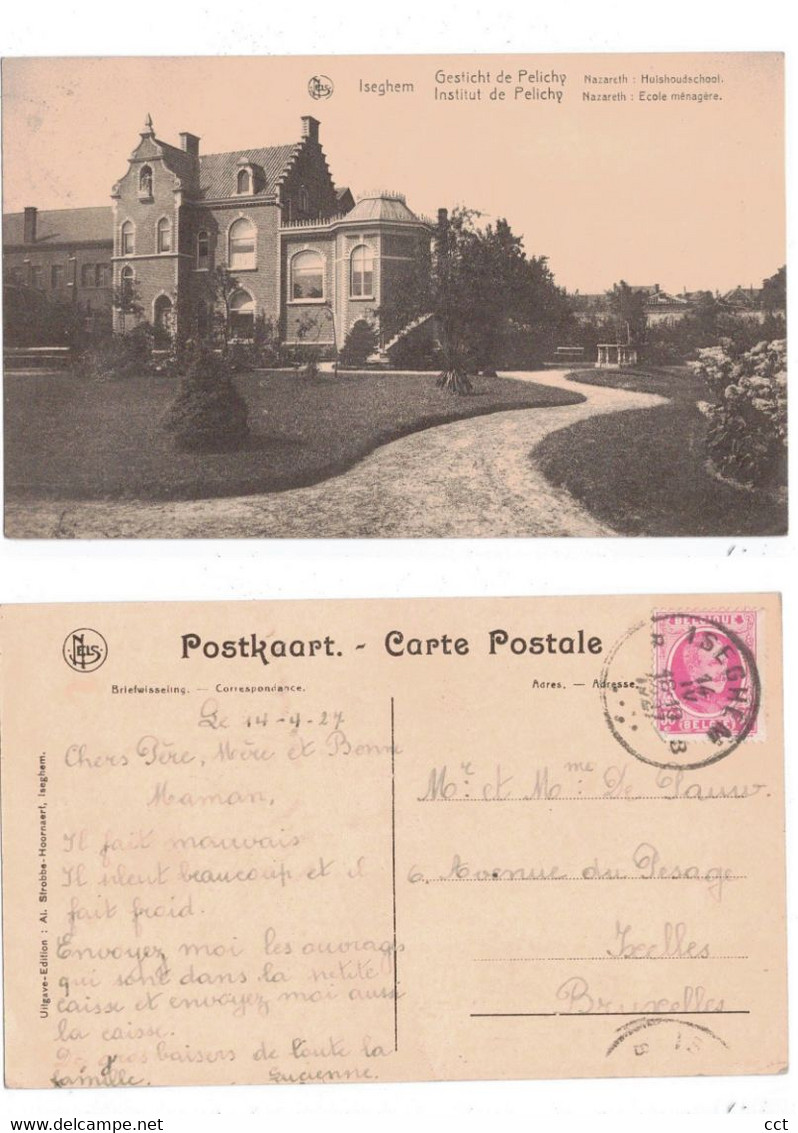 NELS
Iseghem
Gesticht de Pelichy Nazareth : Huishoudschool.
Institut de Pelichy Nazareth : Ecole ménagère.
NELS
Postkaart. - Carte Postale
Briefwisseling. — Correspondance.
Adres. — Adresse.
BELGIQUE
BELGIË
ISEGHEM
14
IV
1927
B
Le 14-4-27
Chers Père, Mère et Bonne
Maman,
Il fait mauvais
Il pleut beaucoup et il
fait froid.
Envoyez moi les ouvrags
qui sont dans la petite
caisse et envoyez moi aussi
la caisse.
De gros baisers de toute la
famille. Lucienne.
Mr et Mme De Pauw.
6. Avenue du Pesage
Ixelles
Bruxelles
Uitgave-Edition : Al. Strobbe-Hoornaert, Iseghem.
www.delcampe.net
cct